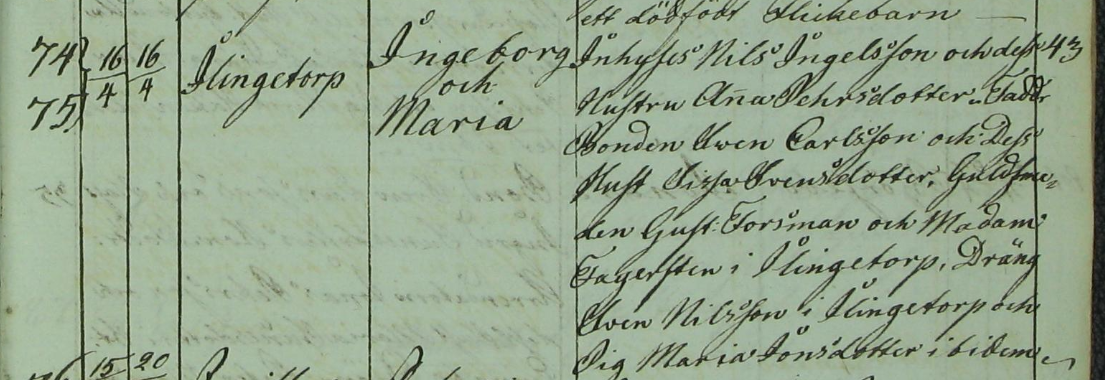 ett dödfödt Flickebarn —
74 16/4 16/4 Slingetorp Ingeborg Inhyses Nils Ingelsson och dess 43
75 och Hustru Anna Pehrsdotter. Faddr
Maria Bonden Swen Carlsson och Dess
Hust Sissa Svensdotter, Guldsme-
den Gust: Forsman och Madam
Fagersten i Slingetorp, Dräng
Swen Nilsson i Slingetorp och
Pig Maria Jonsdotter ibidem
76 15 20